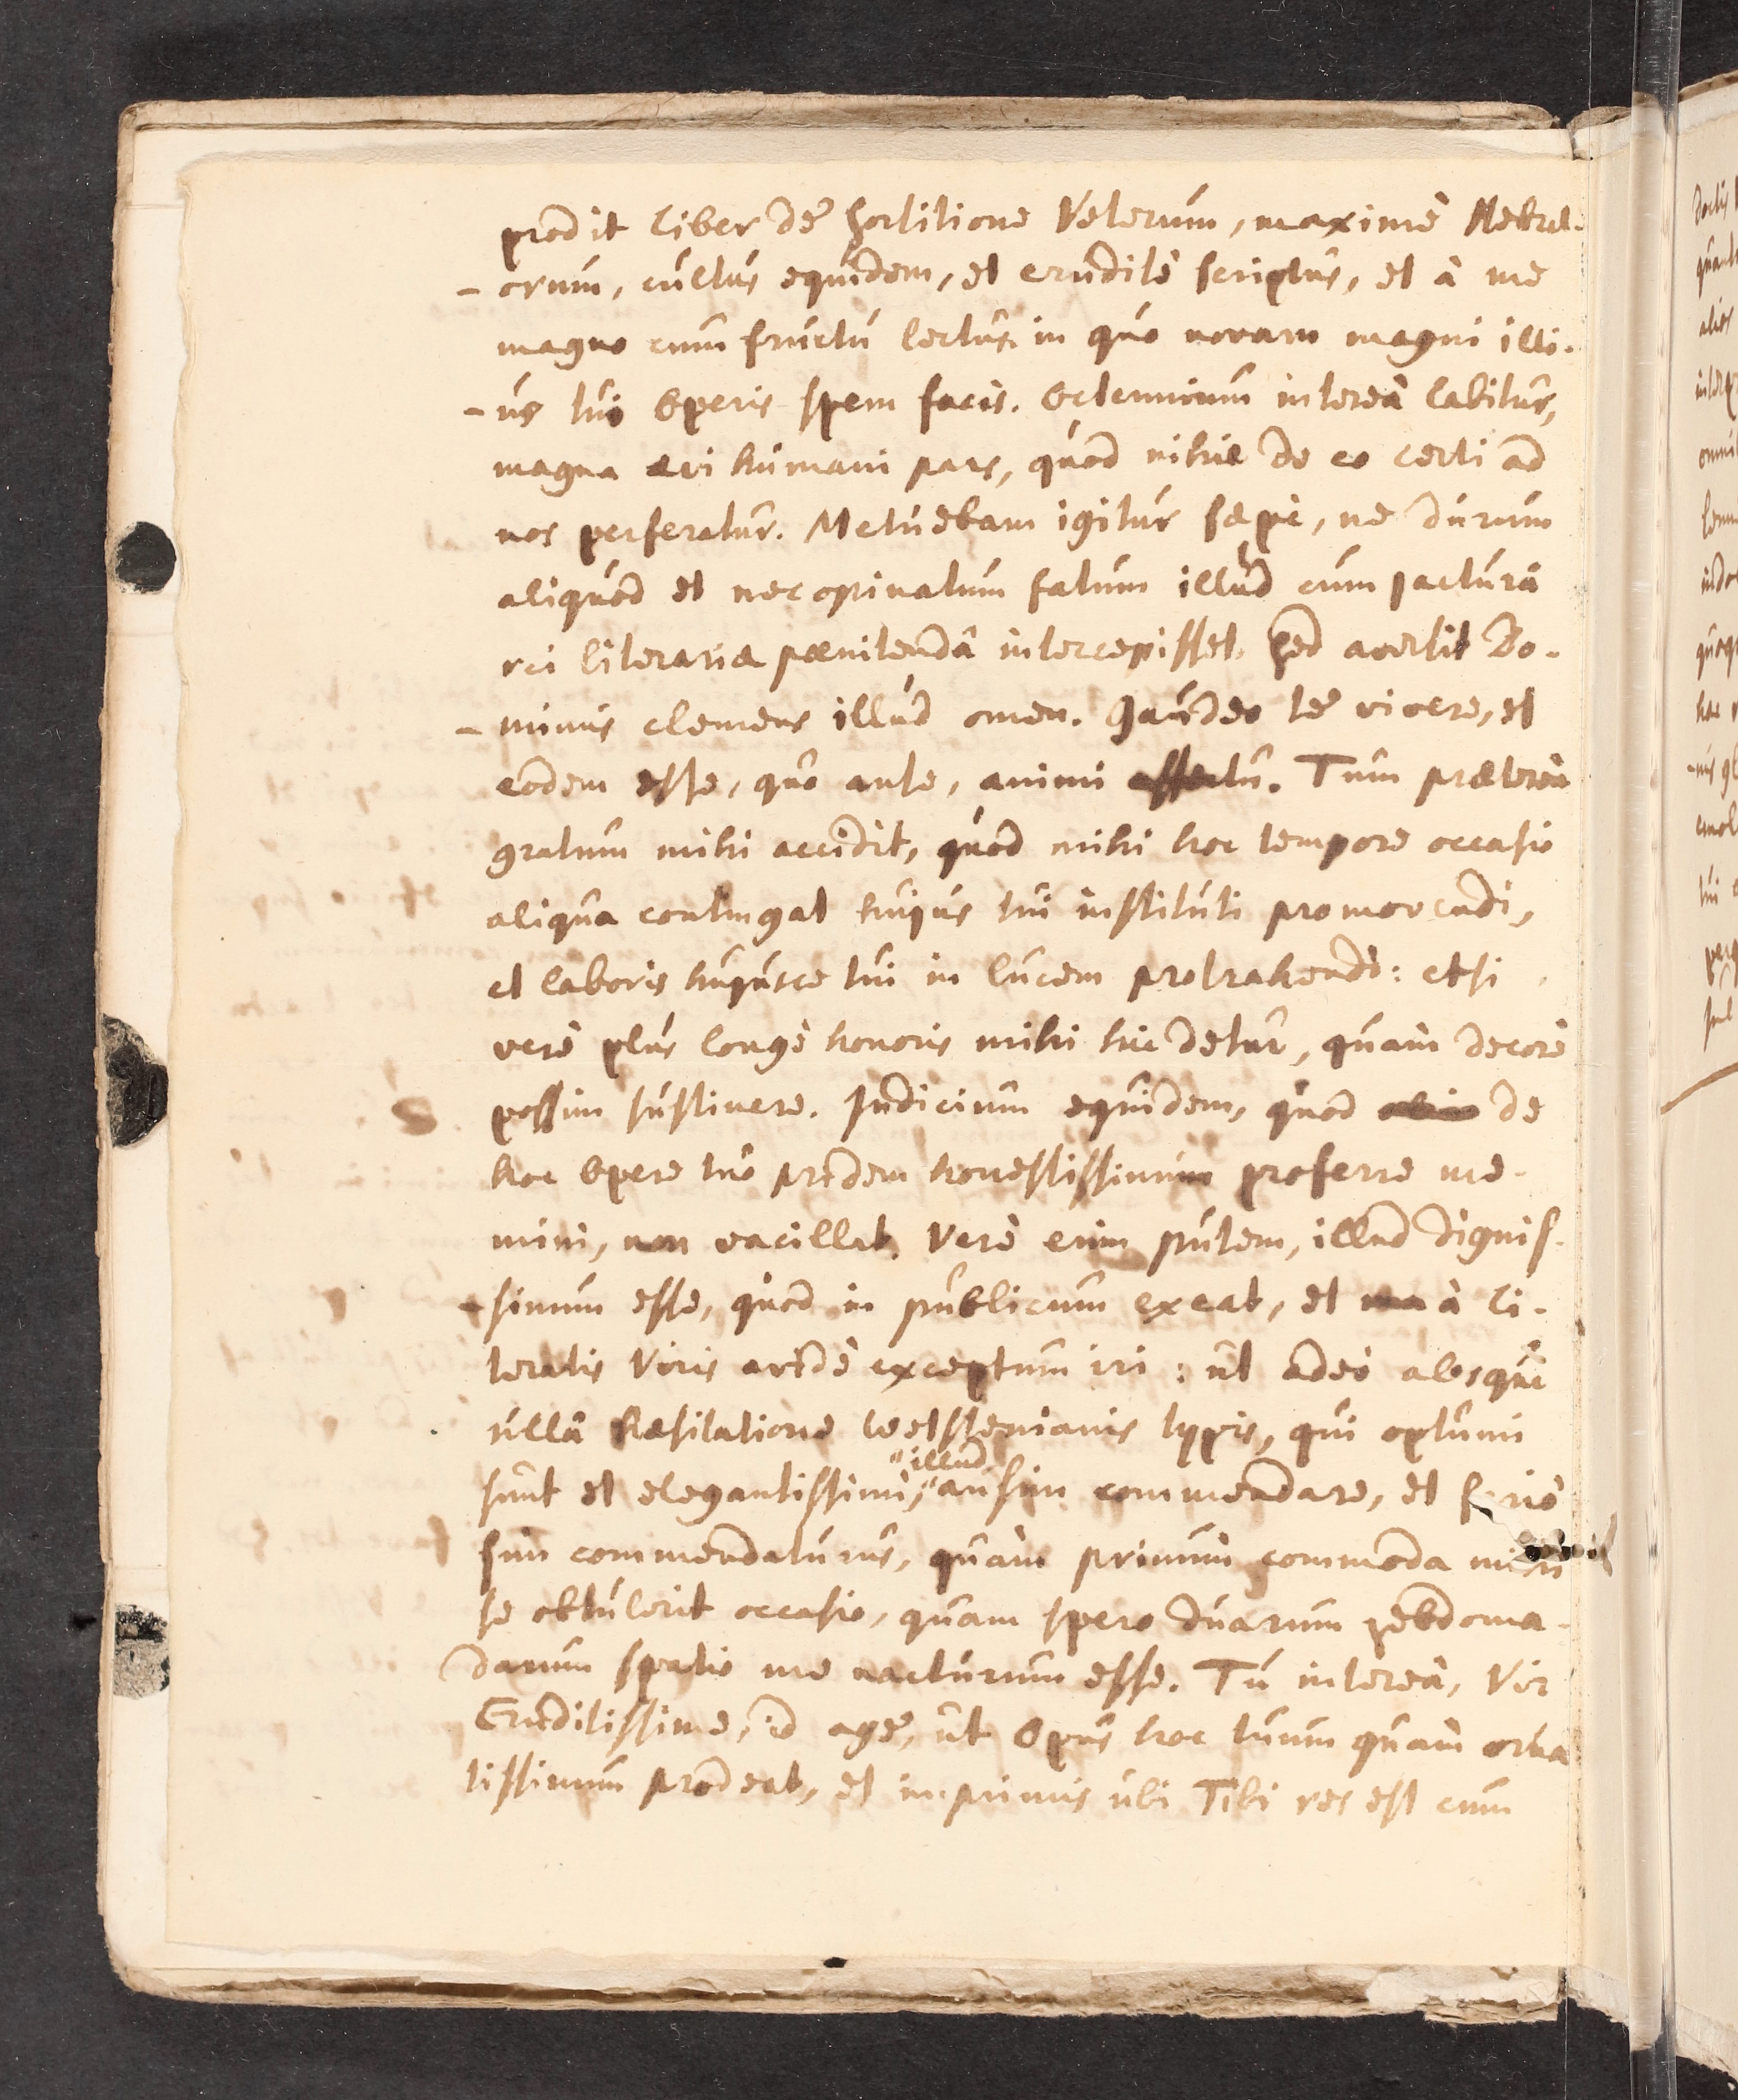 prodit liber de Sortitione Veterum, maximè Hebræ-
-orum, cultus equidem, et eruditè scriptus, et à me
magno cum fructu lectus. in quo novam magni illi-
-us tui operis spem facis. Octennium interea labitur,
magna ævi humani pars, quod nihil de eo certi ad
nos perferatur. Metuebam igitur sæpè, ne durum
aliquod et nec opinatum fatum illud cum jacturâ
rei literariæ pœnitendâ intercepisset. Sed avertit Do-
-minus clemens illud omen. Gaudeo te vivere, et
eodem esse, quo ante, animi affectu. Tum præterea
gratum mihi accidit, quod mihi hoc tempore occasio
aliqua contingat hujus tui instituti promovendi,
et laboris hujusce tui in lucem protrahendi: etsi
verè plus longè honoris mihi hic detur, quàm decorè
possim sustinere. Judicium equidem, quod de
hoc opere tuo pridem honestissimum proferre me-
mini, non vacillat. Verè enim putem, illud dignis-
-simum esse, quod in publicum exeat, et à li-
teratis Viris avidè exceptum iri: ut adeò absque
ullâ hæsitatione Wetstenianis typis, qui optumi
sunt et elegantissimi, "illud" ausim commendare, et seriò
sim commendaturus, quàm primùm commoda mihi
se obtulerit occasio, quam spero duarum hebdoma-
darum spatio me nacturum esse. Tu intereà, Vir
Eruditissime, id age, ut Opus hoc tuum quàm orna
tissimum prodeat, et imprimis ubi Tibi res est cum